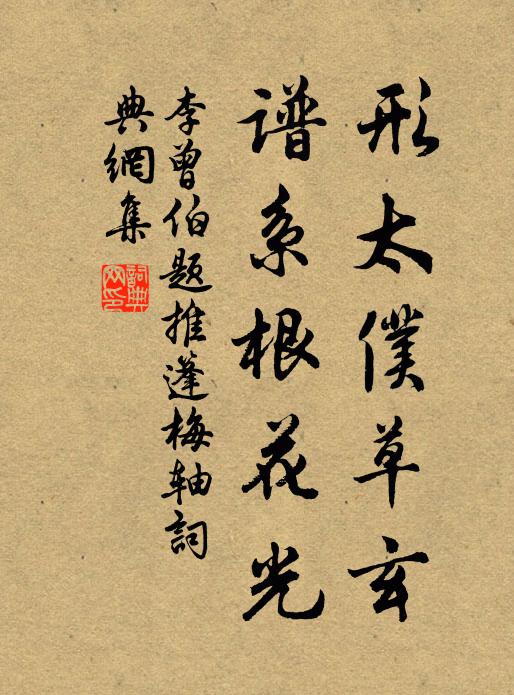 形太僕草玄
谱系根花光
李曾伯题推蓬梅轴詞
典網集
詞典网印